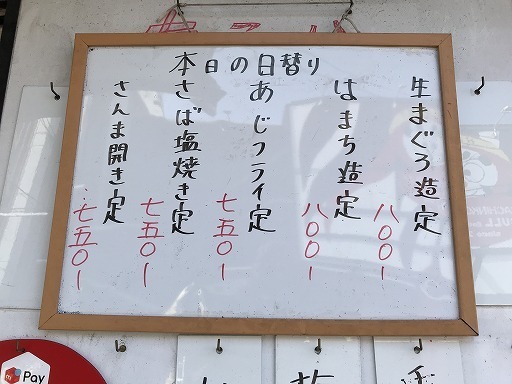 本日の日替り
生まぐろ造定
八〇〇ー
はまち造定
八〇〇ー
あじフライ定
七五〇ー
さば塩焼き定
七五〇ー
さんま開き定
七五〇ー
Pay